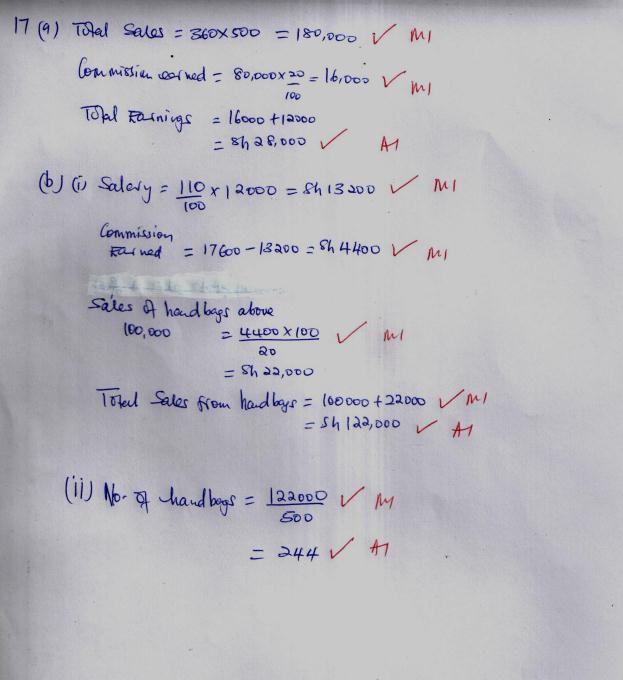 17 (a) Total Sales = 360x500 = 180,000 ✓ M1
Commission earned = 80,000x20/100 = 16,000 ✓ M1
Total Earnings = 16000 + 12000
= Sh 28,000 ✓ A1
(b) (i) Salary = 110/100 x 12000 = Sh 13200 ✓ M1
Commission
Earned = 17600 - 13200 = Sh 4400 ✓ M1
Sales of handbags above
100,000 = 4400 x 100/20 ✓ M1
= Sh 22,000
Total Sales from handbags = 100000 + 22000 ✓ M1
= Sh 122,000 ✓ A1
(ii) No. of handbags = 122000/500 ✓ M1
= 244 ✓ A1